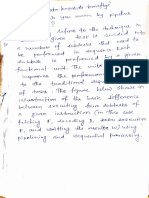 do you mean by pipeline
refers to the technique in
a given task is divided into
a number of subtasks that need to
be performed in sequence. Each
subtask is performed by a given
functional unit. The
the performance
of tasks. The figure below shows an
illustration of the basic difference
between executing four subtasks of
a given instruction (in this case
fetching F, decoding D,
E, and writing the results W) using
pipelining and sequential processing.